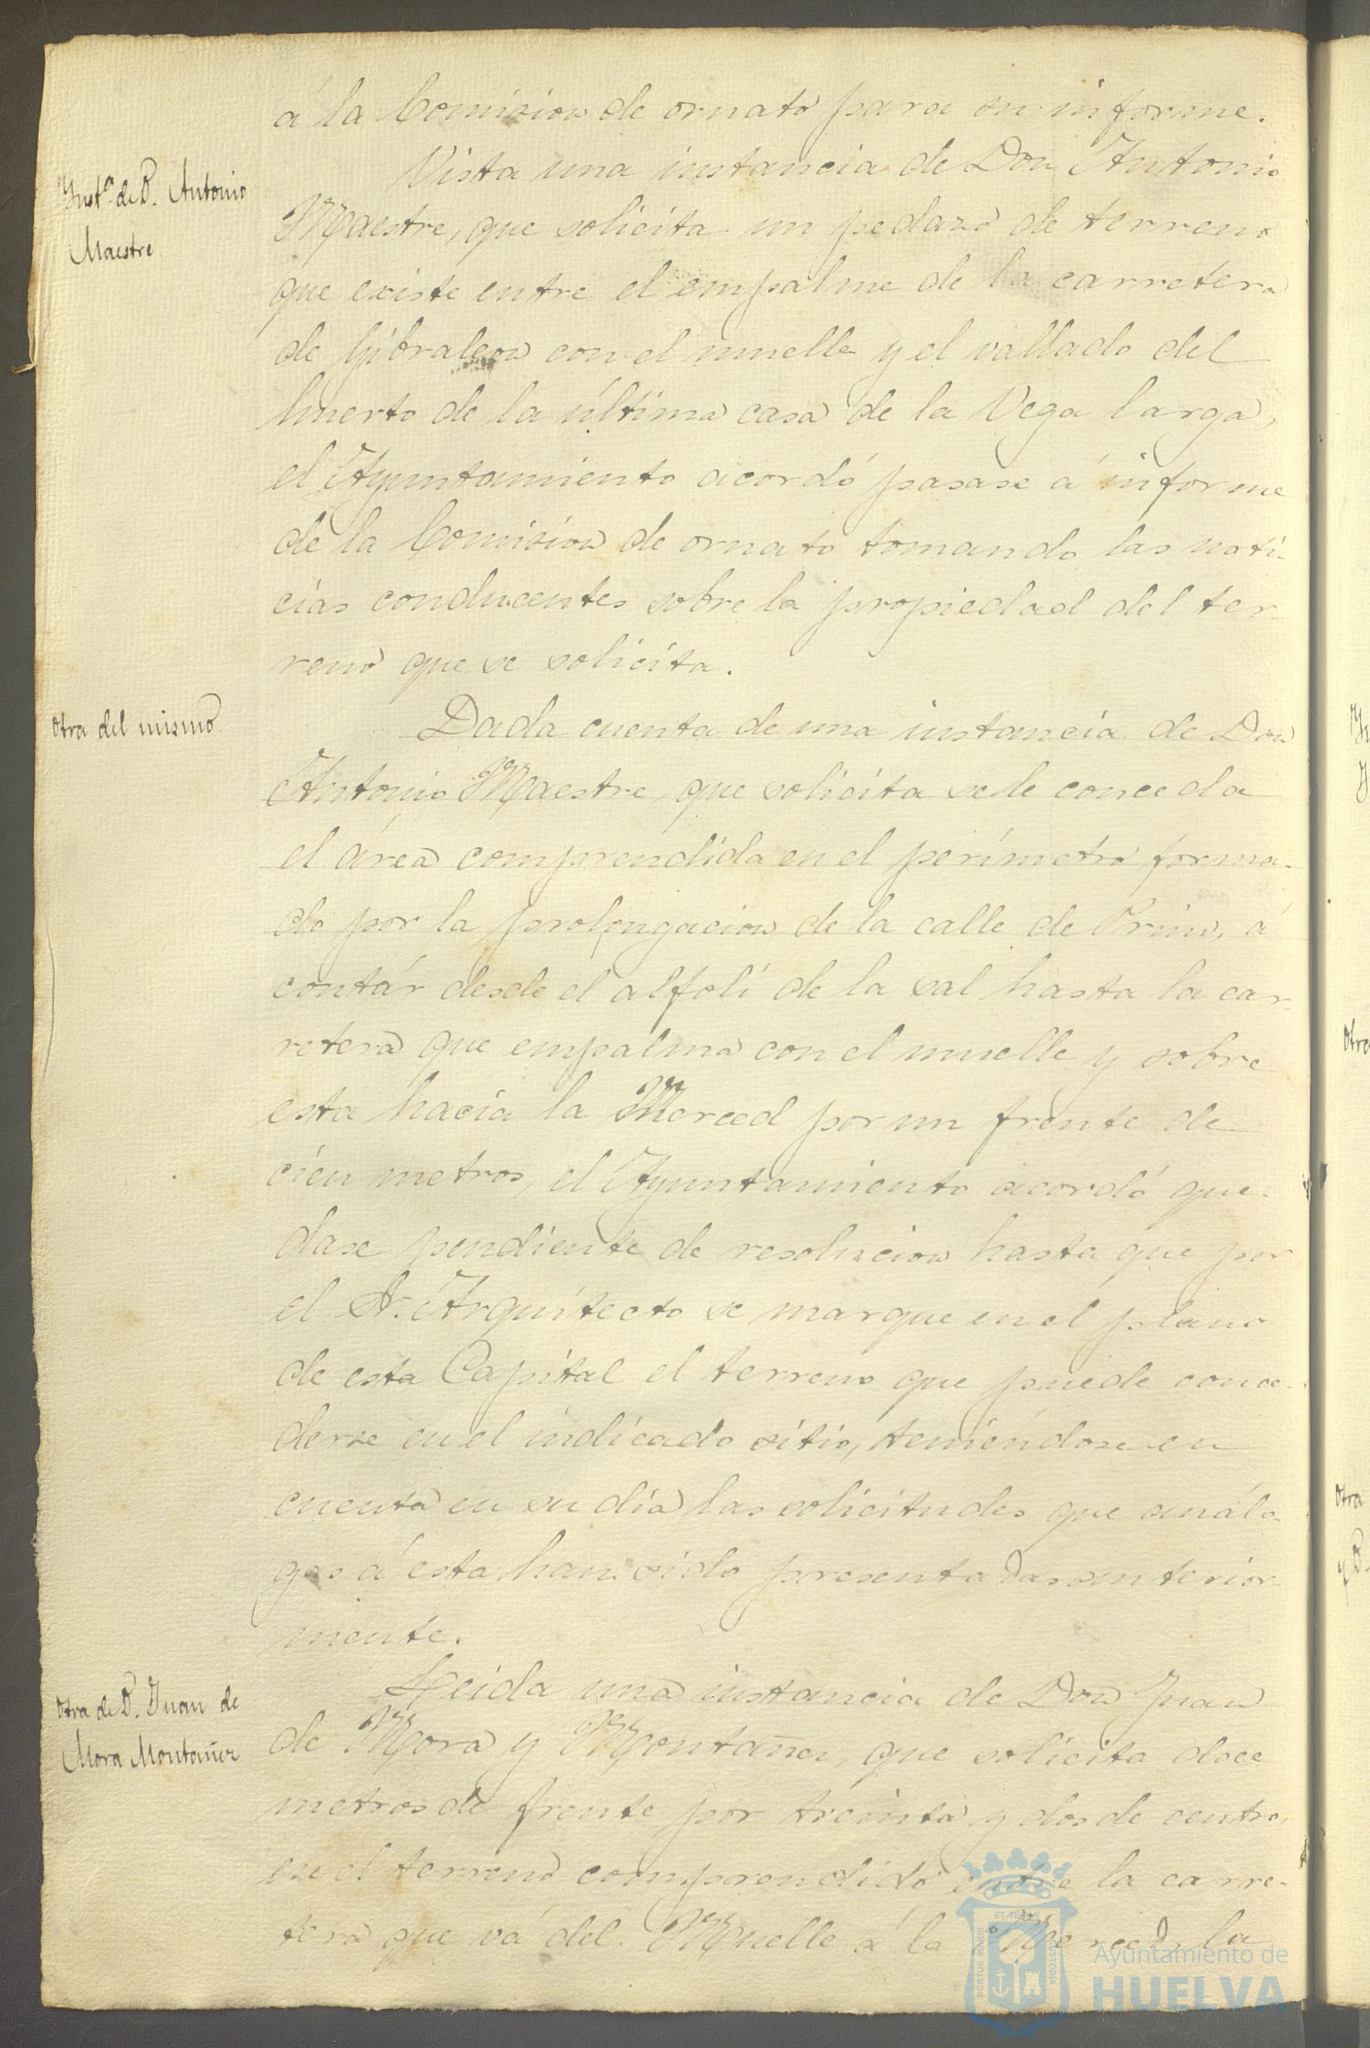 á la Comision de ornato para su informe.
Ynst.ª de D. Antonio
Maestre
Vista una instancia de Don Antonio
Maestre, que solicita un pedazo de terreno
que existe entre el empalme de la carretera
de Gibraleon con el muelle y el vallado del
huerto de la última casa de la Vega larga,
el Ayuntamiento acordó pasase á informe
de la Comision de ornato tomando las noti-
cias conducentes sobre la propiedad del ter-
reno que se solicita.
Otra del mismo
Dada cuenta de una instancia de Don
Antonio Maestre, que solicita se le conceda
el área comprendida en el perímetro forma-
do por la prolongacion de la calle de Prim, á
contár desde el alfolí de la sal hasta la car-
retera que empalma con el muelle y sobre
esta hacia la Merced por un frente de
cien metros, el Ayuntamiento acordó que-
dase pendiente de resolucion hasta que por
el Sr. Arquitecto se marque en el plano
de esta Capital el terreno que puede conce-
derse en el indicado sitio, teniéndose en
cuenta en su dia las solicitudes que análo-
gas á esta han sido presentadas anterior-
mente.
Otra de D. Juan de
Mora Montañer
Leida una instancia de Don Juan
de Mora y Montañer, que solicita doce
metros de frente por treinta y dos de centro,
en el terreno comprendido entre la carre-
tera que vá del Muelle á la Merced, la
Otra
Otra
y D.
PORTUS MARIS
ET TERRE
CUSTODIA
Ayuntamiento de
HUELVA